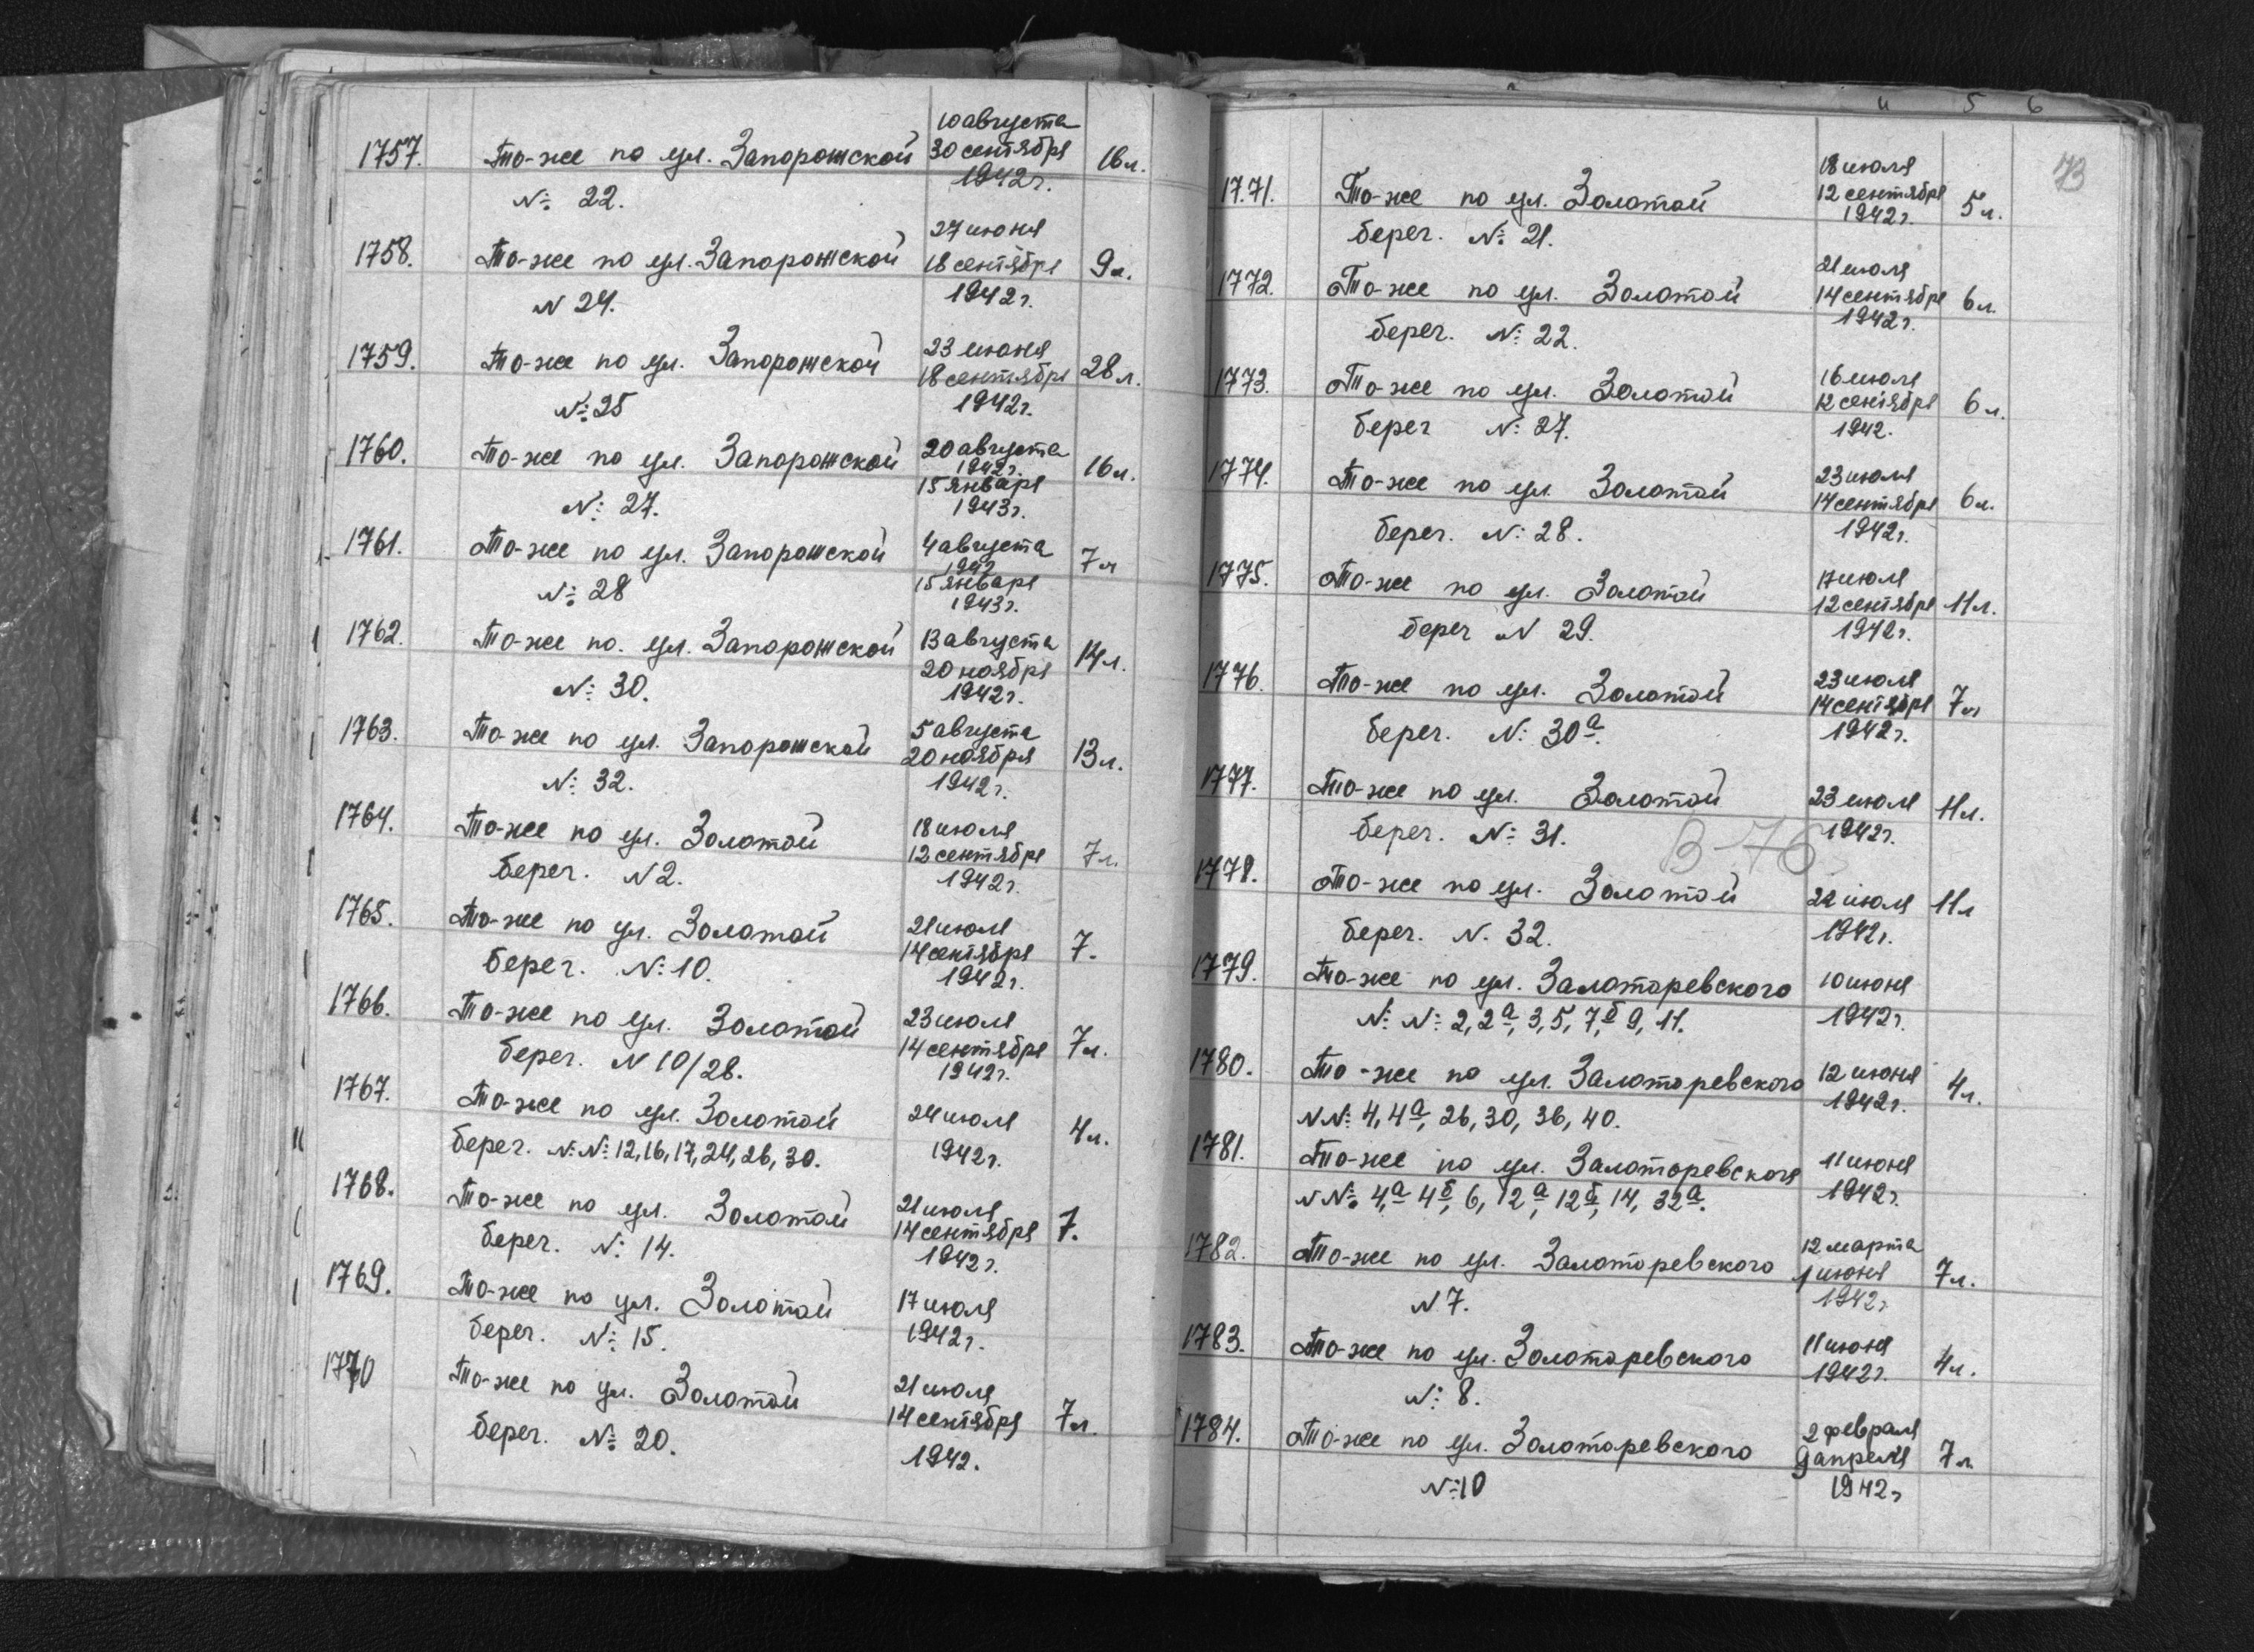 10 августа
1757. То-же по ул. Запорожской 30 сентября 16 л.
№ 22. 1942 г.
27 июня
1758. То-же по ул. Запорожской 18 сентября 9 л.
N 24. 1942 г.
1759. То-же по ул. Запорожской 23 июня
18 сентября 28 л.
№ 25 1942 г.
1760. То-же по ул. Запорожской 20 августа
1942 г. 16 л.
15 января
№ 27. 1943 г.
1761. То-же по ул. Запорожской 4 августа
1942 7 л
15 января
№ 28 1943 г.
1762. То-же по. ул. Запорожской 13 августа
20 ноября 14 л.
№ 30. 1942 г.
1763. То-же по ул. Запорожской 5 августа
20 ноября 13 л.
№ 32. 1942 г.
1764. То-же по ул. Золотой 18 июля
12 сентября 7 л.
берег. N 2. 1942 г.
1765. То-же по ул. Золотой 21 июля
14 сентября 7.
берег. № 10. 1942 г.
1766. То-же по ул. Золотой 23 июля
14 сентября 7 л.
берег. N 10/28. 1942 г.
1767. То-же по ул. Золотой 24 июля 4 л.
берег. №№ 12, 16, 17, 24, 26, 30. 1942 г.
1768. То-же по ул. Золотой 21 июля
14 сентября 7.
берег. № 14. 1942 г.
1769. То-же по ул. Золотой 17 июля
берег. № 15. 1942 г.
1770 То-же по ул. Золотой 21 июля
14 сентября 7 л.
берег. № 20. 1942.
4 5 6
73
18 июля
1771. То-же по ул. Золотой 12 сентября 5 л.
берег. № 21. 1942 г.
21 июля
1772. То-же по ул. Золотой 14 сентября 6 л.
берег. № 22. 1942 г.
16 июля
1773. То-же по ул. Золотой 12 сентября 6 л.
берег № 27. 1942.
1774. То-же по ул. Золотой 23 июля
14 сентября 6 л.
берег. № 28. 1942 г.
1775. То-же по ул. Золотой 17 июля
12 сентября 11 л.
берег N 29. 1942 г.
1776. То-же по ул. Золотой 23 июля
14 сентября 7 л
берег. № 30а. 1942 г.
1777. То-же по ул. Золотой 23 июля 11 л.
берег. № 31. 1942 г.
В-76
1778. То-же по ул. Золотой 22 июля 11 л
берег. N. 32. 1942 г.
1779. То-же по ул. Залоторевского 10 июня
№ № 2, 2а, 3, 5, 7б, 9, 11. 1942 г.
1780. То-же по ул. Залоторевского 12 июня 4 л.
N№ 4, 4а, 26, 30, 36, 40. 1942 г.
1781. То-же по ул. Залоторевского 11 июня
N№ 4а, 4б, 6, 12а, 12б, 14, 32а. 1942 г.
1782. То-же по ул. Залоторевского 12 марта
1 июня 7 л.
N 7. 1942 г
1783. То-же по ул. Золоторевского 11 июня 4 л.
№ 8. 1942 г.
1784. То-же по ул. Золоторевского 2 февраля
9 апреля 7 л
№ 10 1942 г